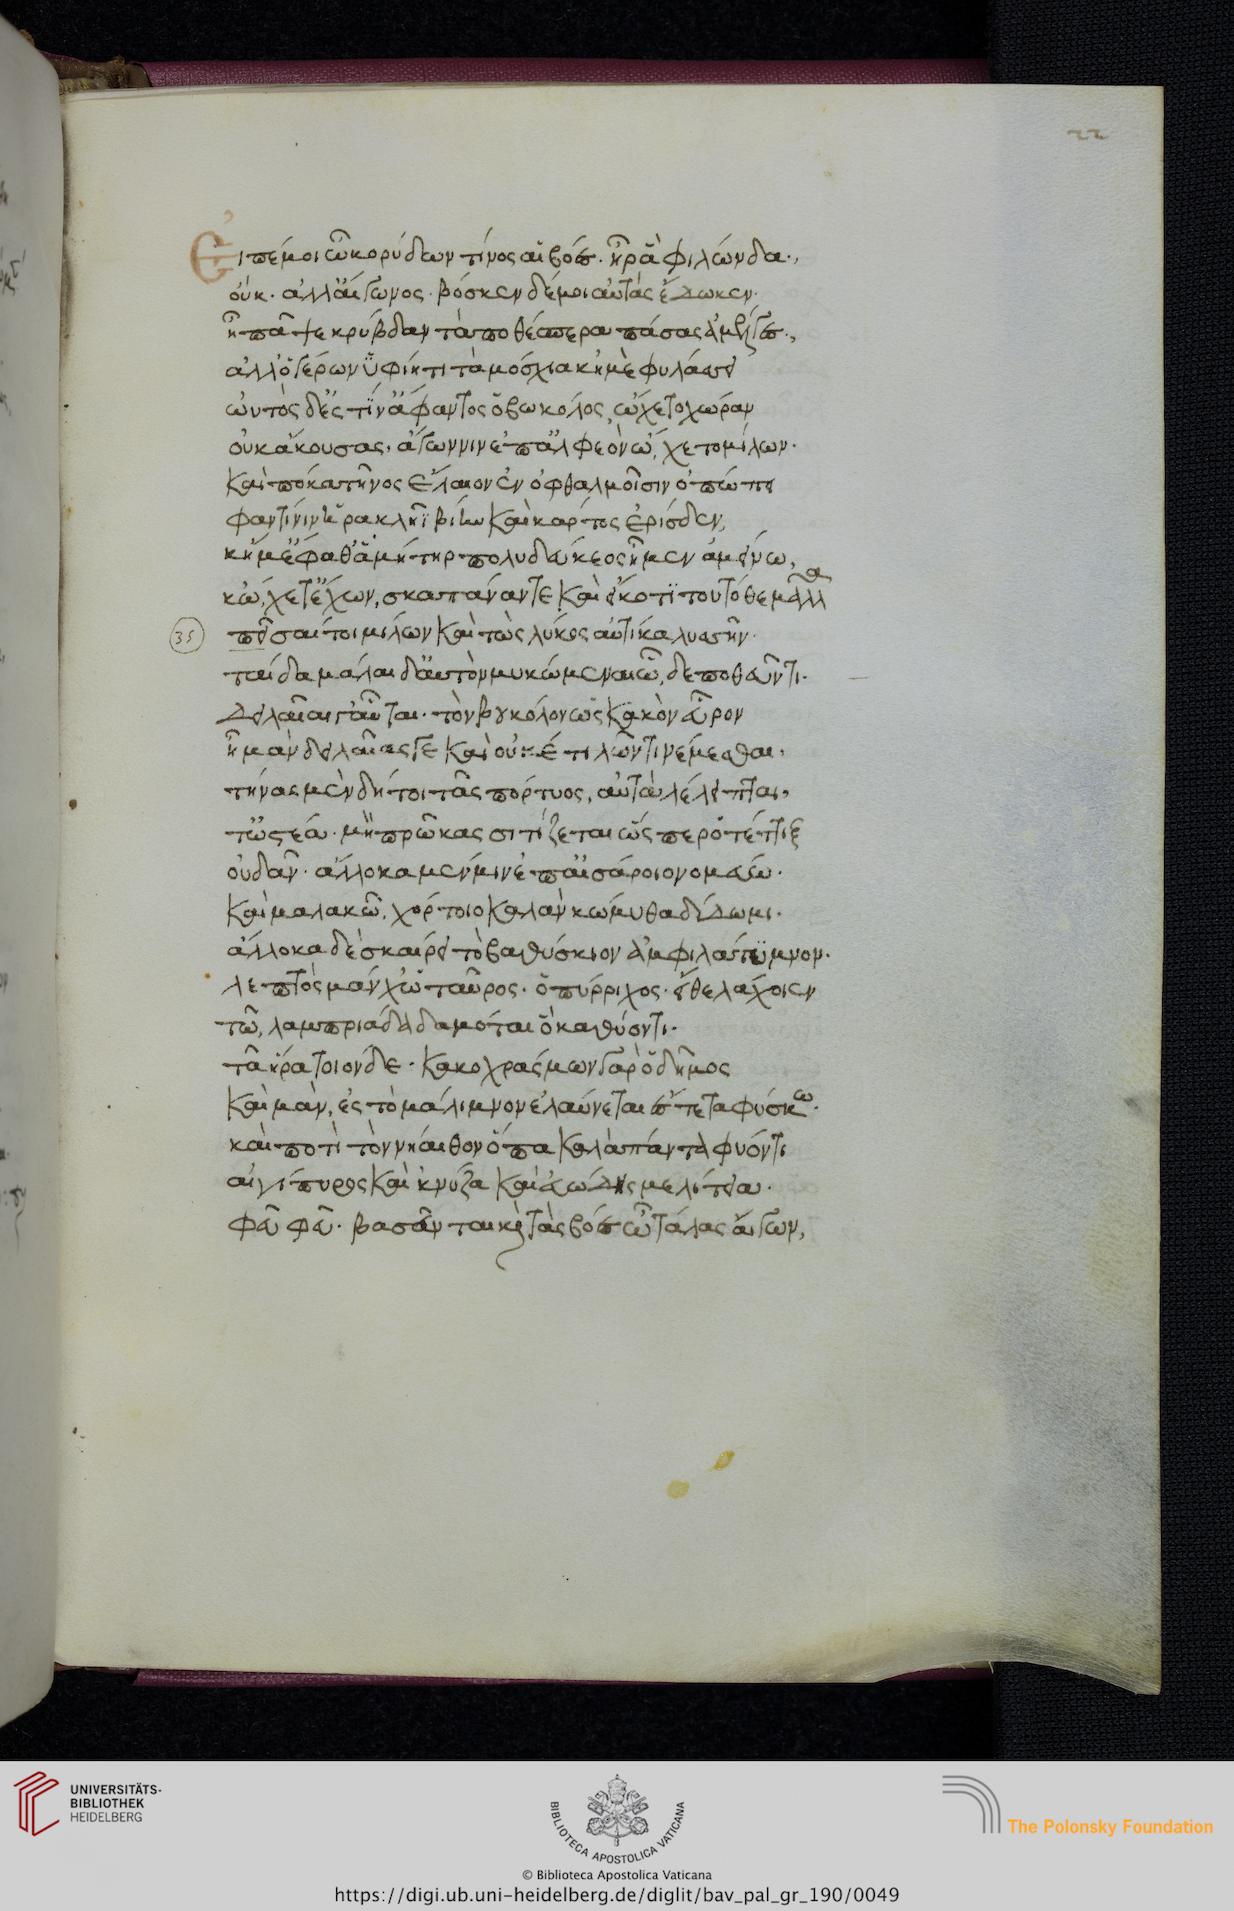 22
Εἰπέ μοι ὦ κορύδων τίνος αἱ βόες. ἦ ῥα φιλώνδα.,
οὔκ. ἀλλ' αἴγωνος. βόσκεν δέ μοι αὐτὰς ἔδωκεν.
ἦ πᾶ ψε κρύβδαν τὰ ποθέσπερα πάσας ἀμέλγες.,
ἀλλ' ὁ γέρων ὑφίητι τὰ μοσχία κἠμὲ φυλάσσει
ωὐτὸς δ' ἐς τίν' ἄφαντος ὁ βωκόλος ᾤχετο χώραν
οὐκ ἄκουσας. ἄγων νιν ἐπ' ἀλφεὸν ᾤχετο μίλων.
καὶ πόκα τῆνος ἔλαιον ἐν ὀφθαλμοῖσιν ὀπώπει
φαντί νιν ἡρακλῆϊ βίην καὶ κάρτος ἐρίσδεν,
κἤμ' ἔφαθ' ἁ μήτηρ πολυδεύκεος ἦμεν ἀμείνω,
κᾤχετ' ἔχων, σκαπάναν τε καὶ εἴκοτι τουτόθε μᾶλλα
35
πείσαι τοι μίλων καὶ τὼς λύκος αὐτίκα λυσσῆν.
ταὶ δαμάλαι δ' αὐτὸν μυκώμεναι ὧδε ποθεῦντι.
δειλαῖαι γ' αὗται. τὸν βουκόλον ὡς κακὸν εὗρον
ἦ μὰν δειλαῖαί γε καὶ οὐκ ἔτι λῶντι νέμεσθαι.
τήνας μὲν δή τοι τᾶς πόρτιος, αὐτὰ λέλειπται,
τὤστεα. μὴ πρῶκας σιτίζεται ὥσπερ ὁ τέττιξ
οὐ δᾶν. ἀλλ' ὅκα μέν μιν ἐπ' αἰσάροιο νομεύω.
καὶ μαλακῶ χόρτοιο καλὰν κώμυθα δίδωμι.
ἄλλοκα δὲ σκαίρει τὸ βαθύσκιον ἀμφὶ λάτυμνον.
λεπτὸς μὰν χὠ ταῦρος. ὁ πύρριχος. εἴθε λάχοιεν
τῶ λαμπριάδα δαμόται ὅκα θύοντι.
τᾷ ἥρᾳ τοιόνδε. κακοχράσμων γὰρ ὁ δῆμος
καὶ μὰν, ἐς τὸ μάλιμνον ἐλαύνεται ἔς τε τὰ φύσκω.
καὶ ποτὶ τὸν νήαιθον ὅπα καλὰ πάντα φύοντι
αἰγίπυρος καὶ κνύζα καὶ εὐώδης μελίτεια.
φεῦ φεῦ. βασεῦνται καὶ ταὶ βόες ὦ τάλας αἴγων,
UNIVERSITÄTS-
BIBLIOTHEK
HEIDELBERG
BIBLIOTECA APOSTOLICA VATICANA
The Polonsky Foundation
© Biblioteca Apostolica Vaticana
https://digi.ub.uni-heidelberg.de/diglit/bav_pal_gr_190/0049